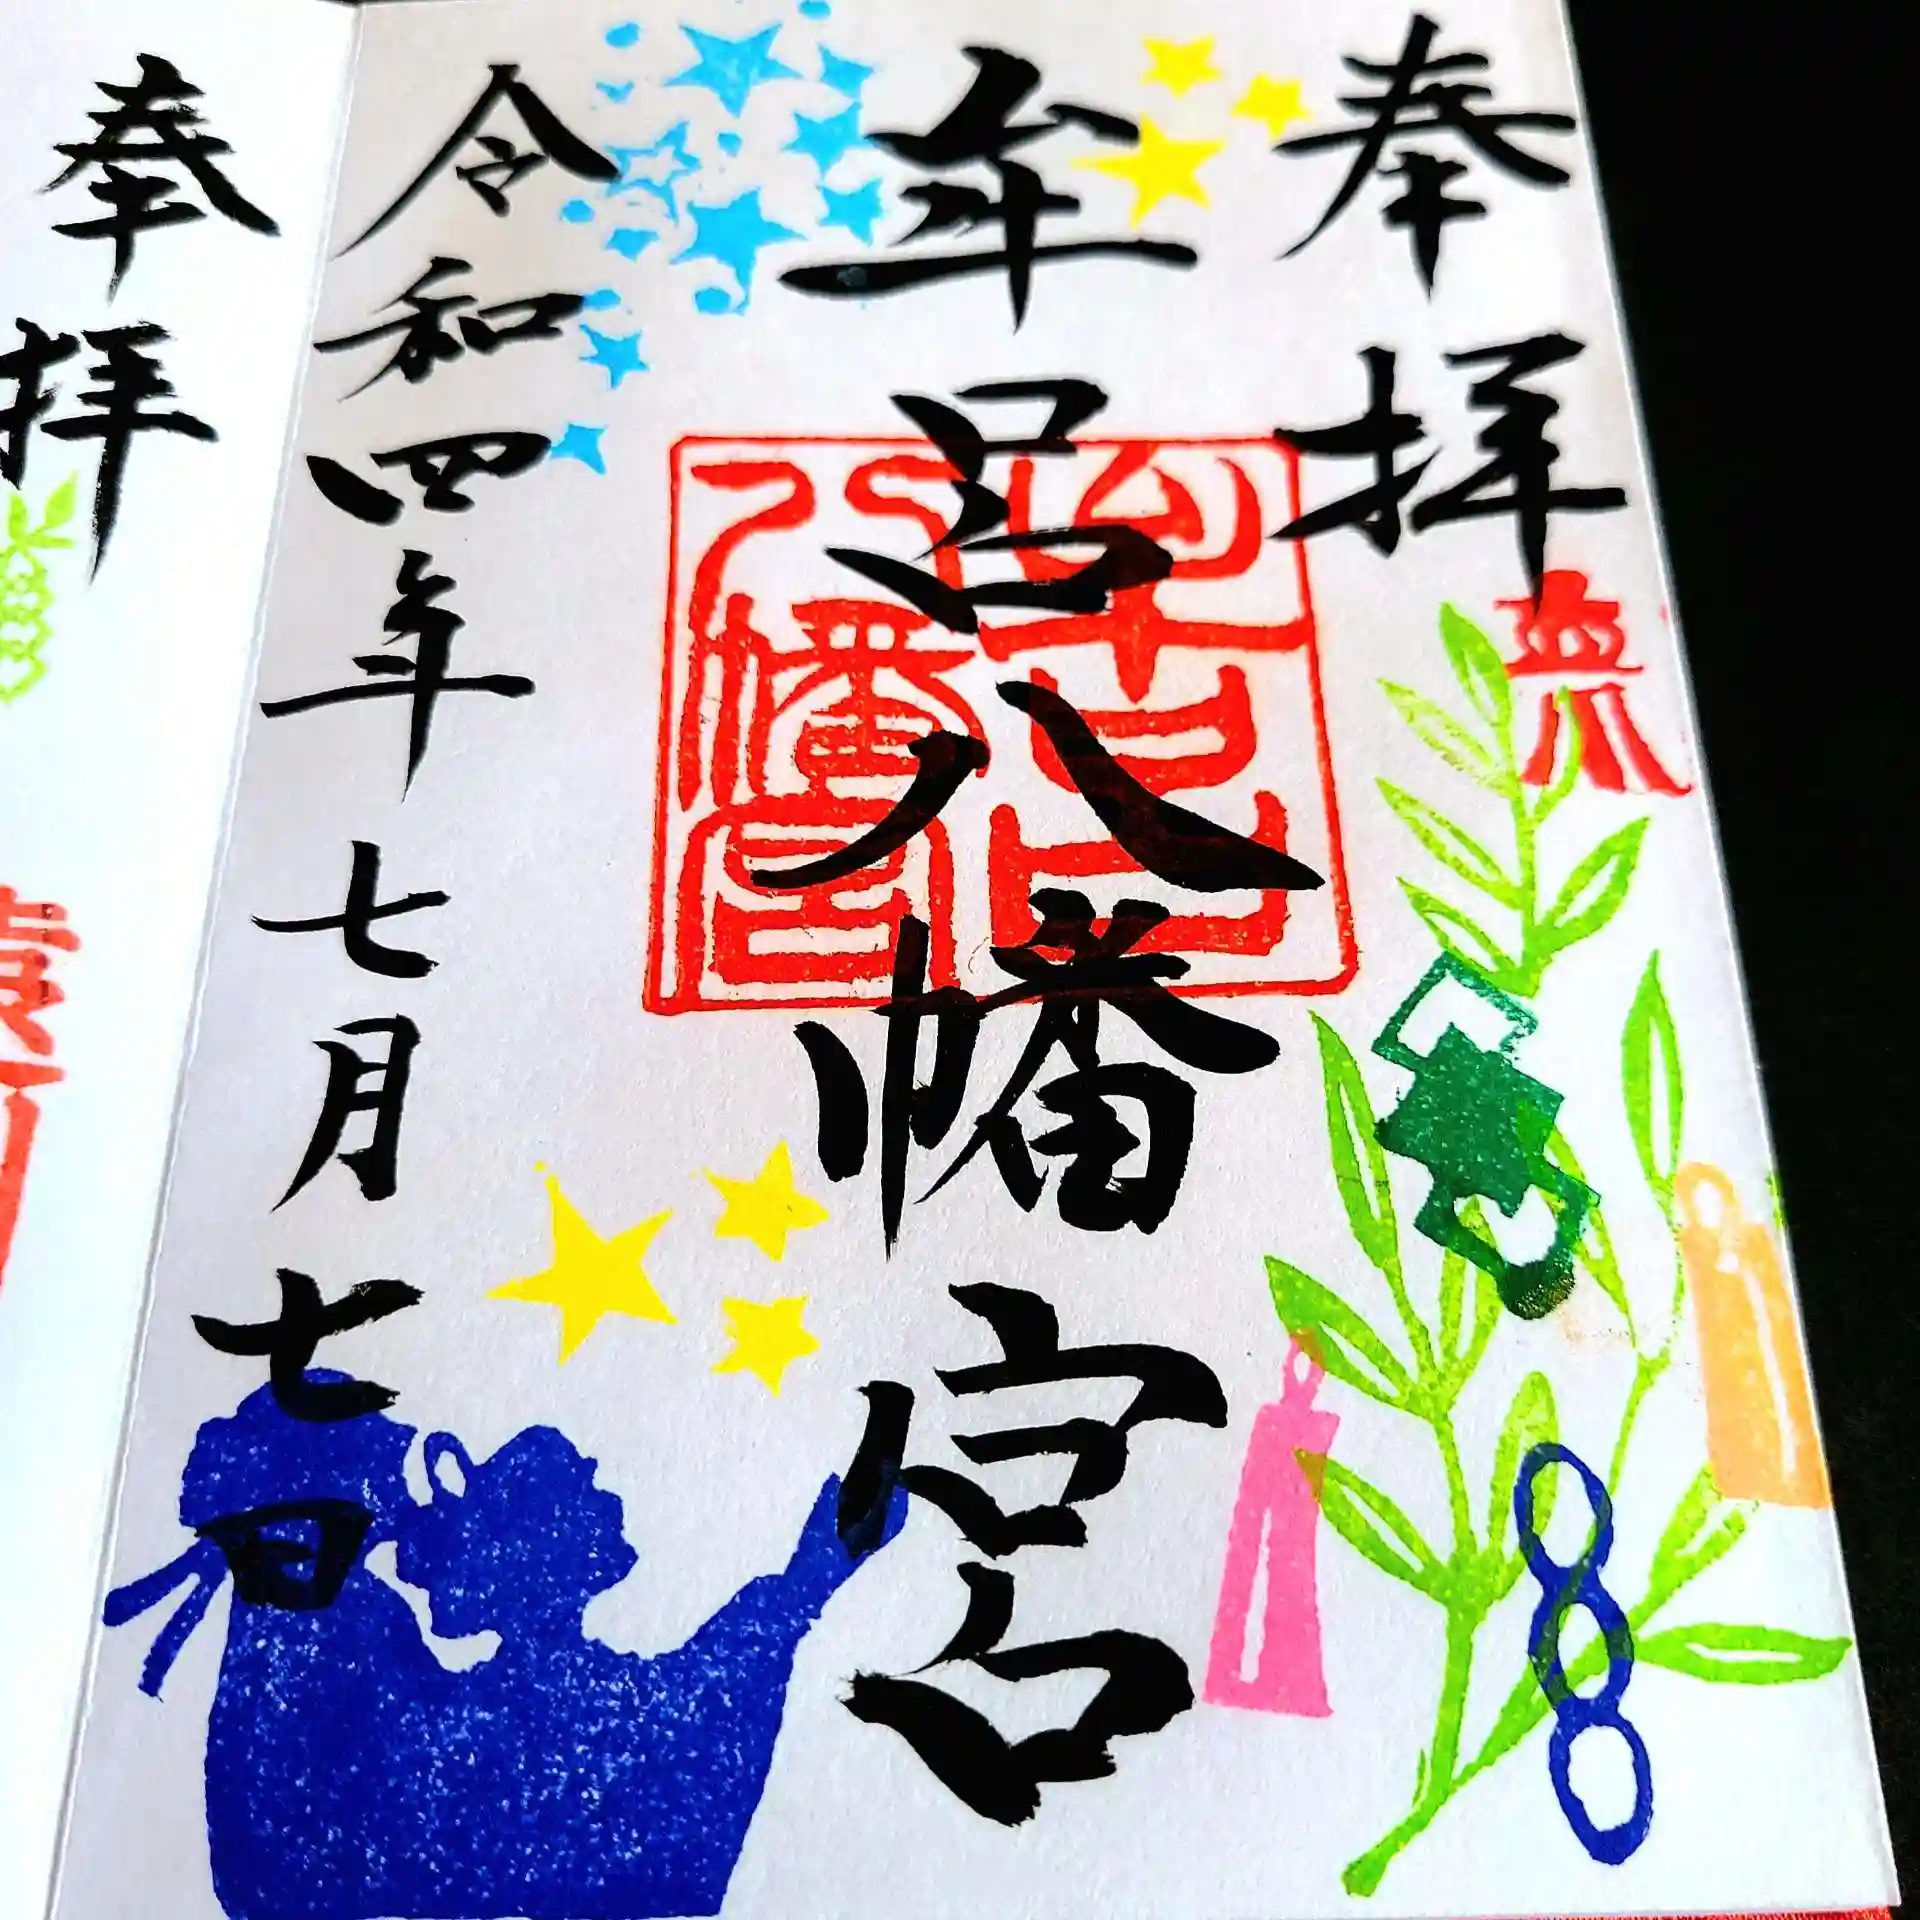 奉拝
牟呂八幡宮
牟呂八幡宮
令和四年七月七日
奉拝